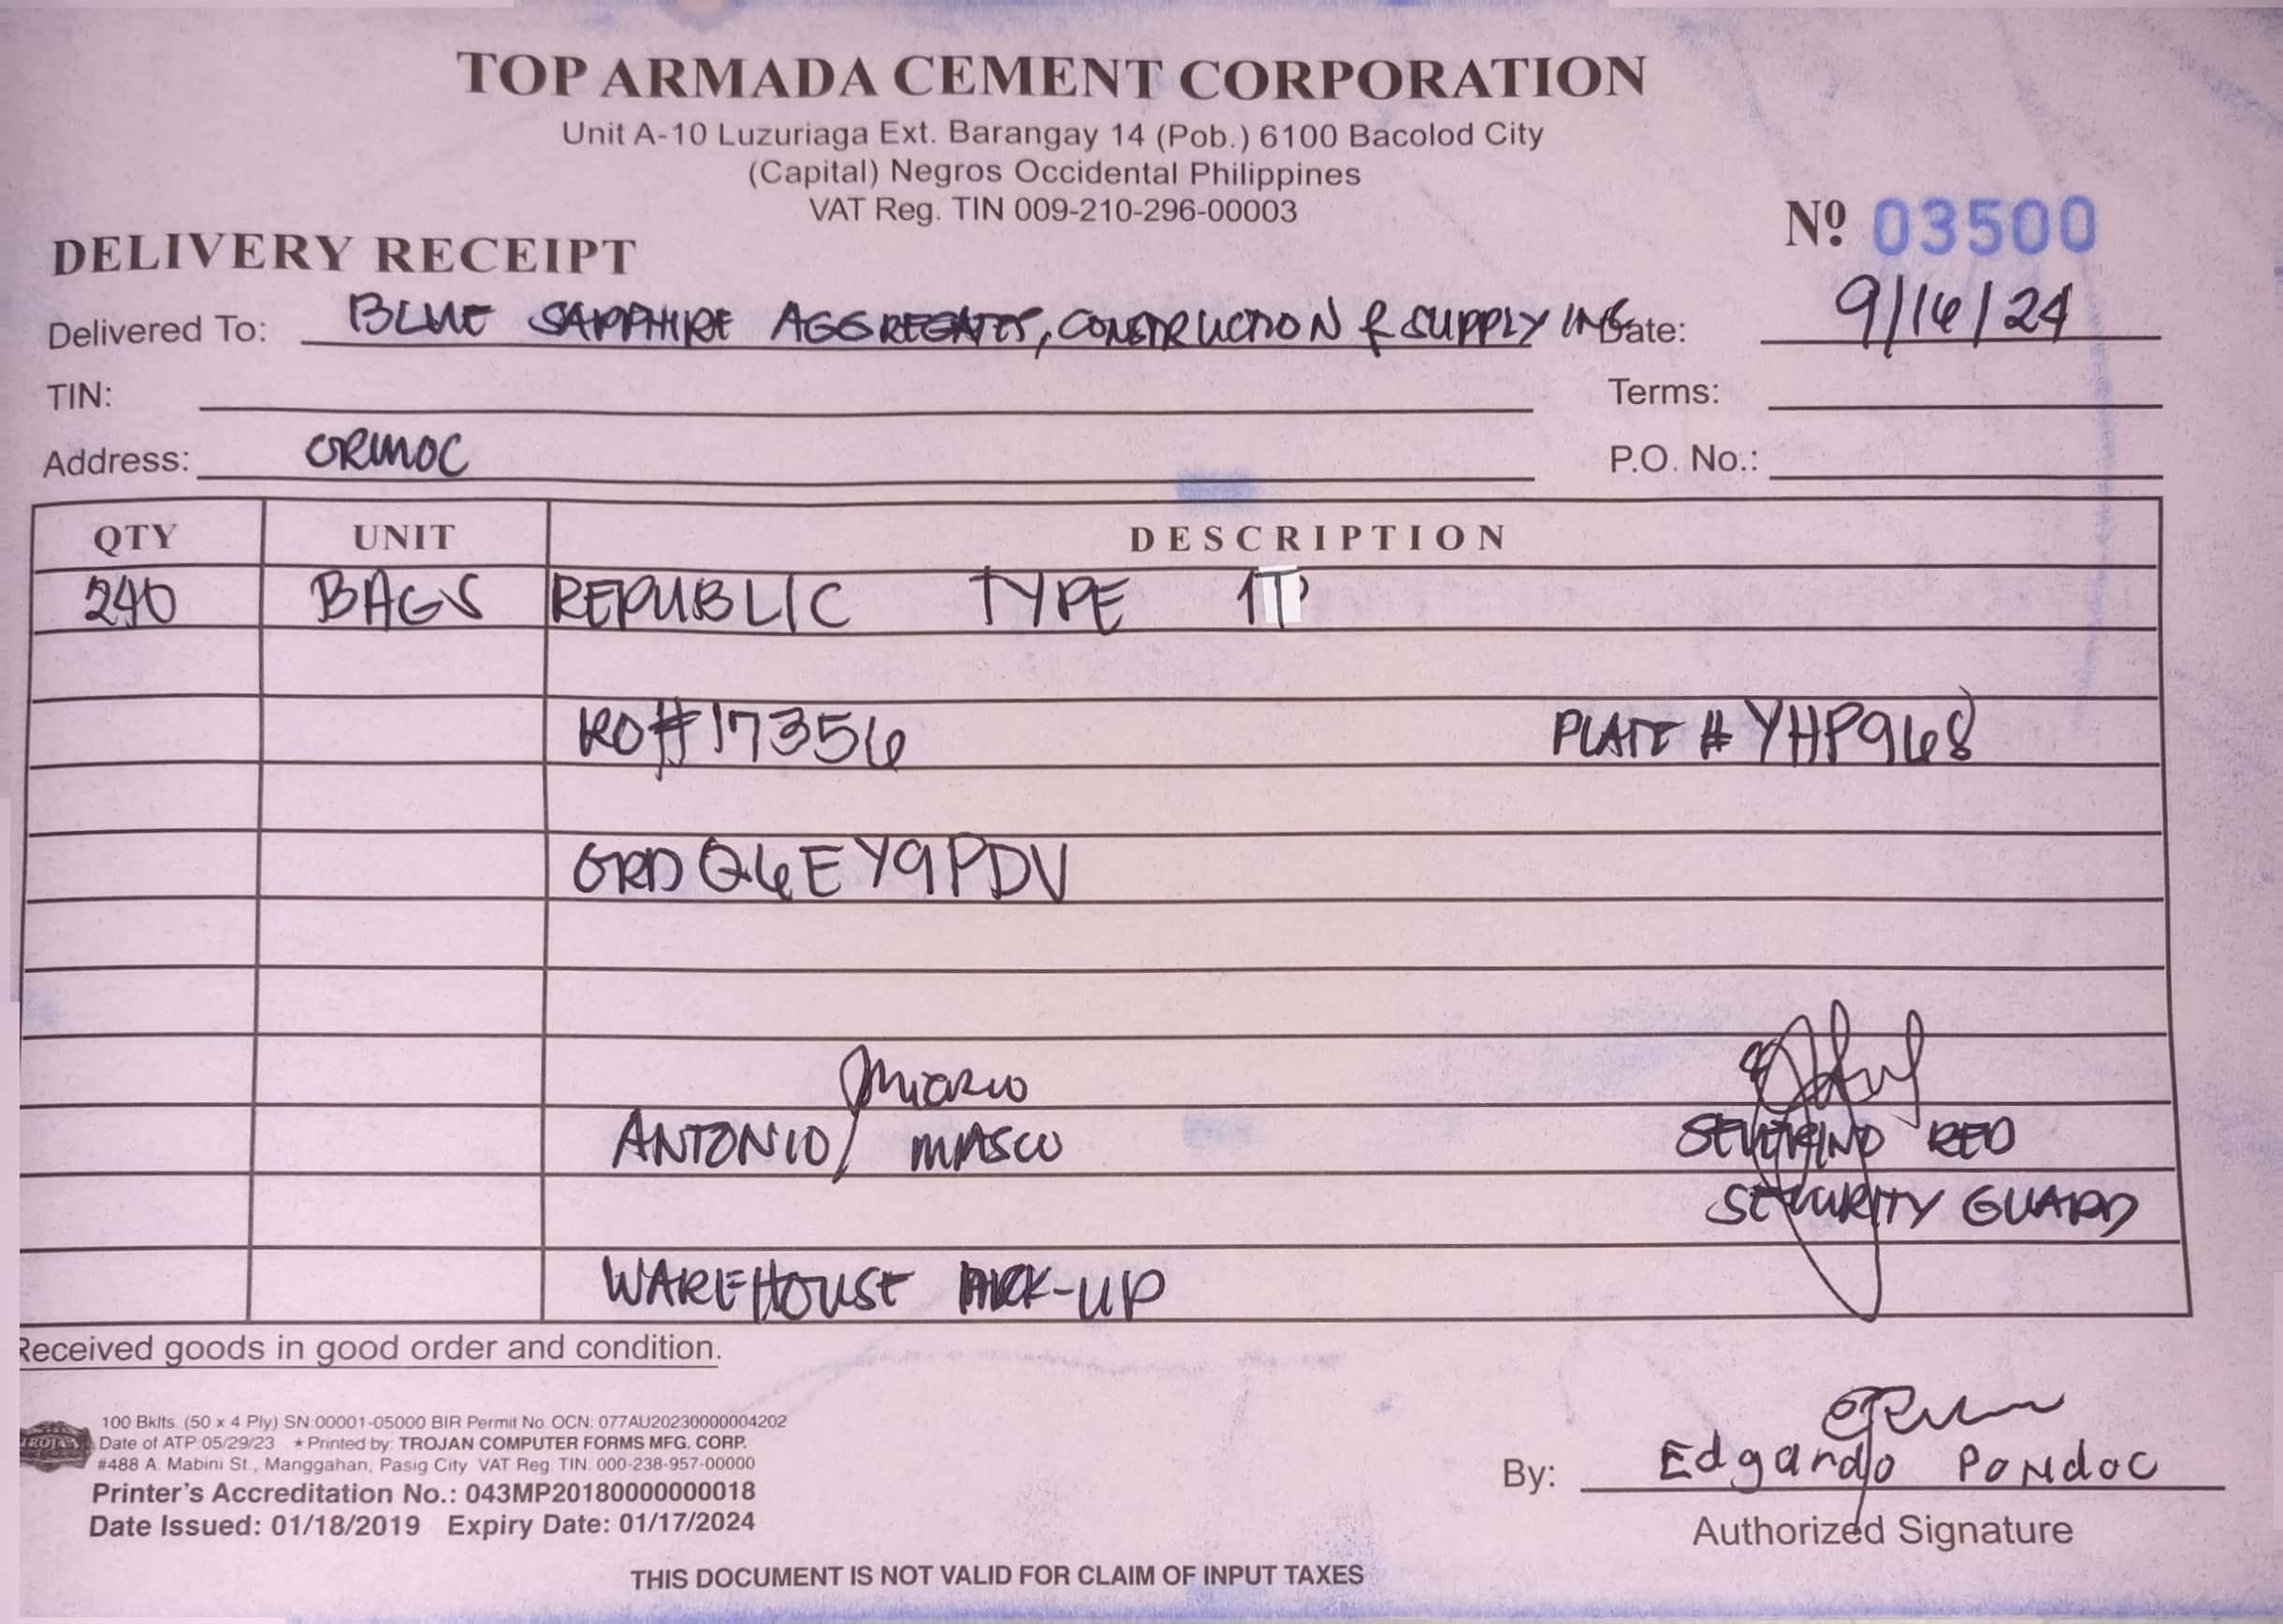 TOP ARMADA CEMENT CORPORATION
Unit A-10 Luzuriaga Ext. Barangay 14 (Pob.) 6100 Bacolod City
(Capital) Negros Occidental Philippines
VAT Reg. TIN 009-210-296-00003
Nº 03500
DELIVERY RECEIPT
Delivered To: BLUE SAPPHIRE AGGREGATES, CONSTRUCTION & SUPPLY INC Date: 9/16/24
TIN: Terms:
Address: ORMOC P.O. No.:
QTY UNIT DESCRIPTION
240 BAGS REPUBLIC TYPE 1T
RO#17356 PLATE # YHP968
ORDQ6EY9PDV
ANTONIO MASCO SEVERINO RED
SECURITY GUARD
WAREHOUSE PICK-UP
Received goods in good order and condition.
100 Bklts. (50 x 4 Ply) SN:00001-05000 BIR Permit No. OCN: 077AU20230000004202
TROJAN Date of ATP:05/29/23 * Printed by: TROJAN COMPUTER FORMS MFG. CORP.
#488 A. Mabini St., Manggahan, Pasig City VAT Reg. TIN: 000-238-957-00000
Printer's Accreditation No.: 043MP20180000000018
Date Issued: 01/18/2019 Expiry Date: 01/17/2024
By: Edgardo Pondoc
Authorized Signature
THIS DOCUMENT IS NOT VALID FOR CLAIM OF INPUT TAXES